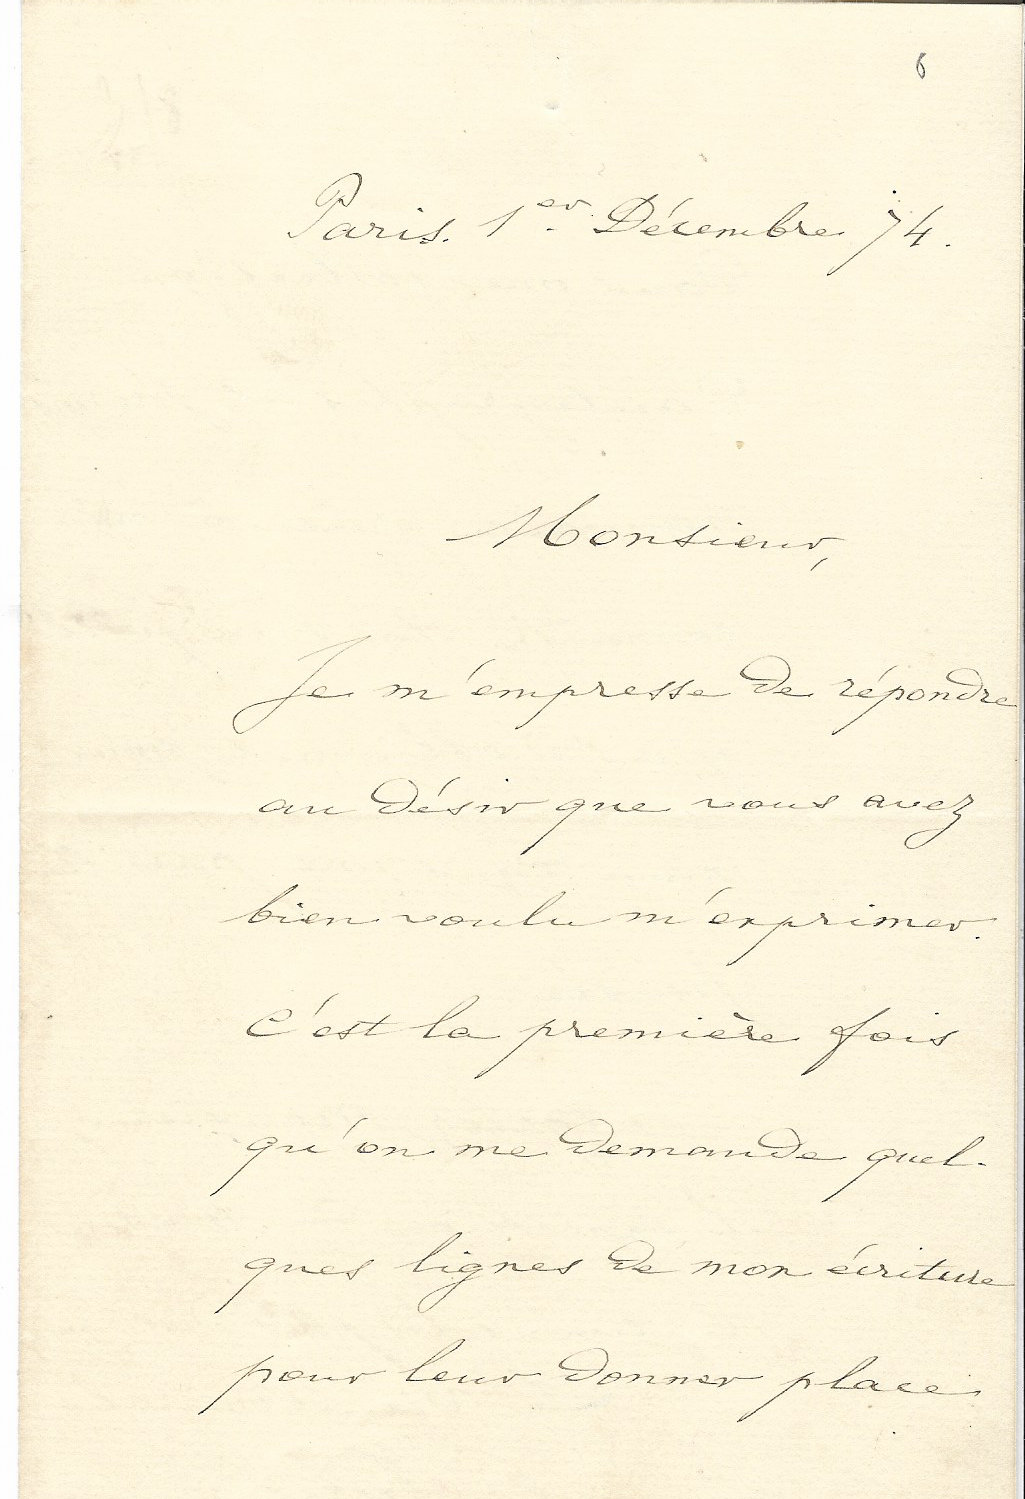 6
Paris. 1er. Décembre 74.
Monsieur,
Je m'empresse de répondre
au désir que vous avez
bien voulu m'exprimer.
C'est la première fois
qu'on me demande quel-
ques lignes de mon écriture
pour leur donner place